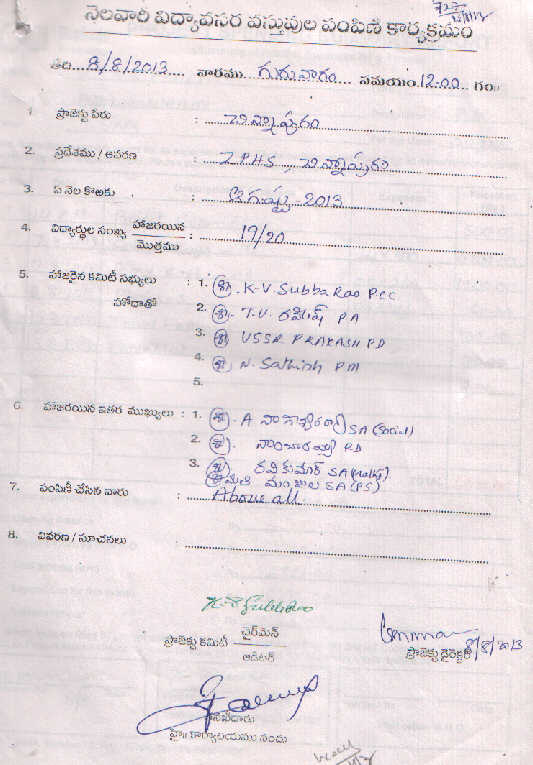 నెలవారి విద్యావసర వస్తువుల పంపిణి కార్యక్రమం
తేది...8/8/2013.... వారము గురువారం... సమయం 12-00 గం
1. ప్రాజెక్టు పేరు : చిన్నాపురం
2. ప్రదేశము / ఆవరణ : ZPHS, చిన్నాపురం
3. ఏ నెల కొఱకు : ఆగష్టు - 2013
4. విద్యార్థుల సంఖ్య హాజరయిన / మొత్తము : 19/20
5. హాజరైన కమిటీ సభ్యులు : 1. శ్రీ. K.V Subba Rao PCC
హోదాతో 2. శ్రీ. T.V. రమేష్ PA
3. శ్రీ VSSR PRAKASH PD
4. శ్రీ N. Sathish PM
5.
6. హాజరయిన ఇతర ముఖ్యులు : 1. శ్రీ. A నాగేశ్వరరావు SA (Social)
2. శ్రీ. PD
3. శ్రీ రవికుమార్ SA (Maths)
శ్రీమతి మంజుల SA (PS)
7. పంపిణీ చేసిన వారు : Above all
8. వివరణ / సూచనలు :
K.V Subba Rao
ప్రాజెక్టు కమిటీ చైర్‌మెన్ / ఆడిటర్
ప్రాజెక్టు డైరెక్టర్ 8/8/2013
హై॥ కార్యాలయము నందు